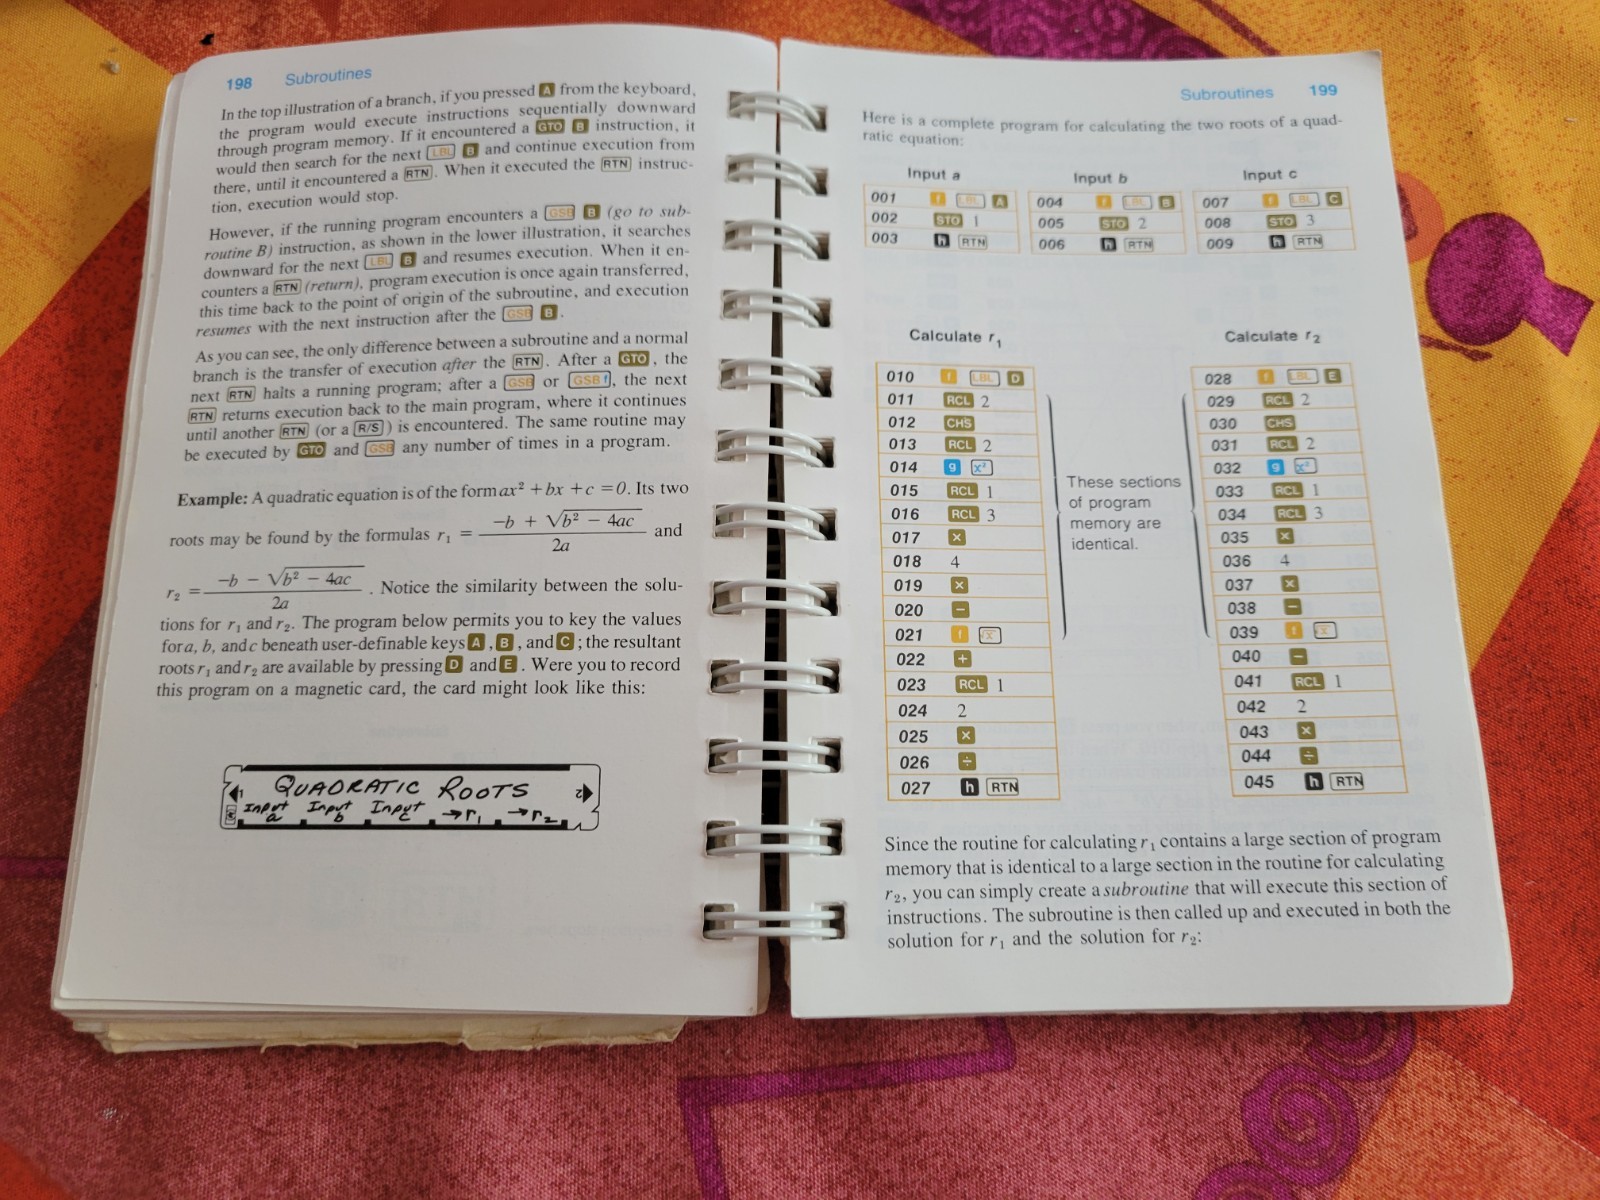 198 Subroutines
In the top illustration of a branch, if you pressed A from the keyboard,
the program would execute instructions sequentially downward
through program memory. If it encountered a GTO B instruction, it
would then search for the next LBL B and continue execution from
there, until it encountered a RTN. When it executed the RTN instruc-
tion, execution would stop.
However, if the running program encounters a GSB B (go to sub-
routine B) instruction, as shown in the lower illustration, it searches
downward for the next LBL B and resumes execution. When it en-
counters a RTN (return), program execution is once again transferred,
this time back to the point of origin of the subroutine, and execution
resumes with the next instruction after the GSB B.
As you can see, the only difference between a subroutine and a normal
branch is the transfer of execution after the RTN. After a GTO, the
next RTN halts a running program; after a GSB or GSB f, the next
RTN returns execution back to the main program, where it continues
until another RTN (or a R/S) is encountered. The same routine may
be executed by GTO and GSB any number of times in a program.
Example: A quadratic equation is of the form ax² + bx + c = 0. Its two
roots may be found by the formulas r₁ = (−b + √(b² − 4ac)) / 2a and
r₂ = (−b − √(b² − 4ac)) / 2a. Notice the similarity between the solu-
tions for r₁ and r₂. The program below permits you to key the values
for a, b, and c beneath user-definable keys A, B, and C; the resultant
roots r₁ and r₂ are available by pressing D and E. Were you to record
this program on a magnetic card, the card might look like this:
1 QUADRATIC ROOTS 2
Input a Input b Input c →r₁ →r₂
Subroutines 199
Here is a complete program for calculating the two roots of a quad-
ratic equation:
Input a
001 f LBL A
002 STO 1
003 h RTN
Input b
004 f LBL B
005 STO 2
006 h RTN
Input c
007 f LBL C
008 STO 3
009 h RTN
Calculate r₁
010 f LBL D
011 RCL 2
012 CHS
013 RCL 2
014 g x²
015 RCL 1
016 RCL 3
017 ×
018 4
019 ×
020 −
021 f √x
022 +
023 RCL 1
024 2
025 ×
026 ÷
027 h RTN
These sections
of program
memory are
identical.
Calculate r₂
028 f LBL E
029 RCL 2
030 CHS
031 RCL 2
032 g x²
033 RCL 1
034 RCL 3
035 ×
036 4
037 ×
038 −
039 f √x
040 −
041 RCL 1
042 2
043 ×
044 ÷
045 h RTN
Since the routine for calculating r₁ contains a large section of program
memory that is identical to a large section in the routine for calculating
r₂, you can simply create a subroutine that will execute this section of
instructions. The subroutine is then called up and executed in both the
solution for r₁ and the solution for r₂: